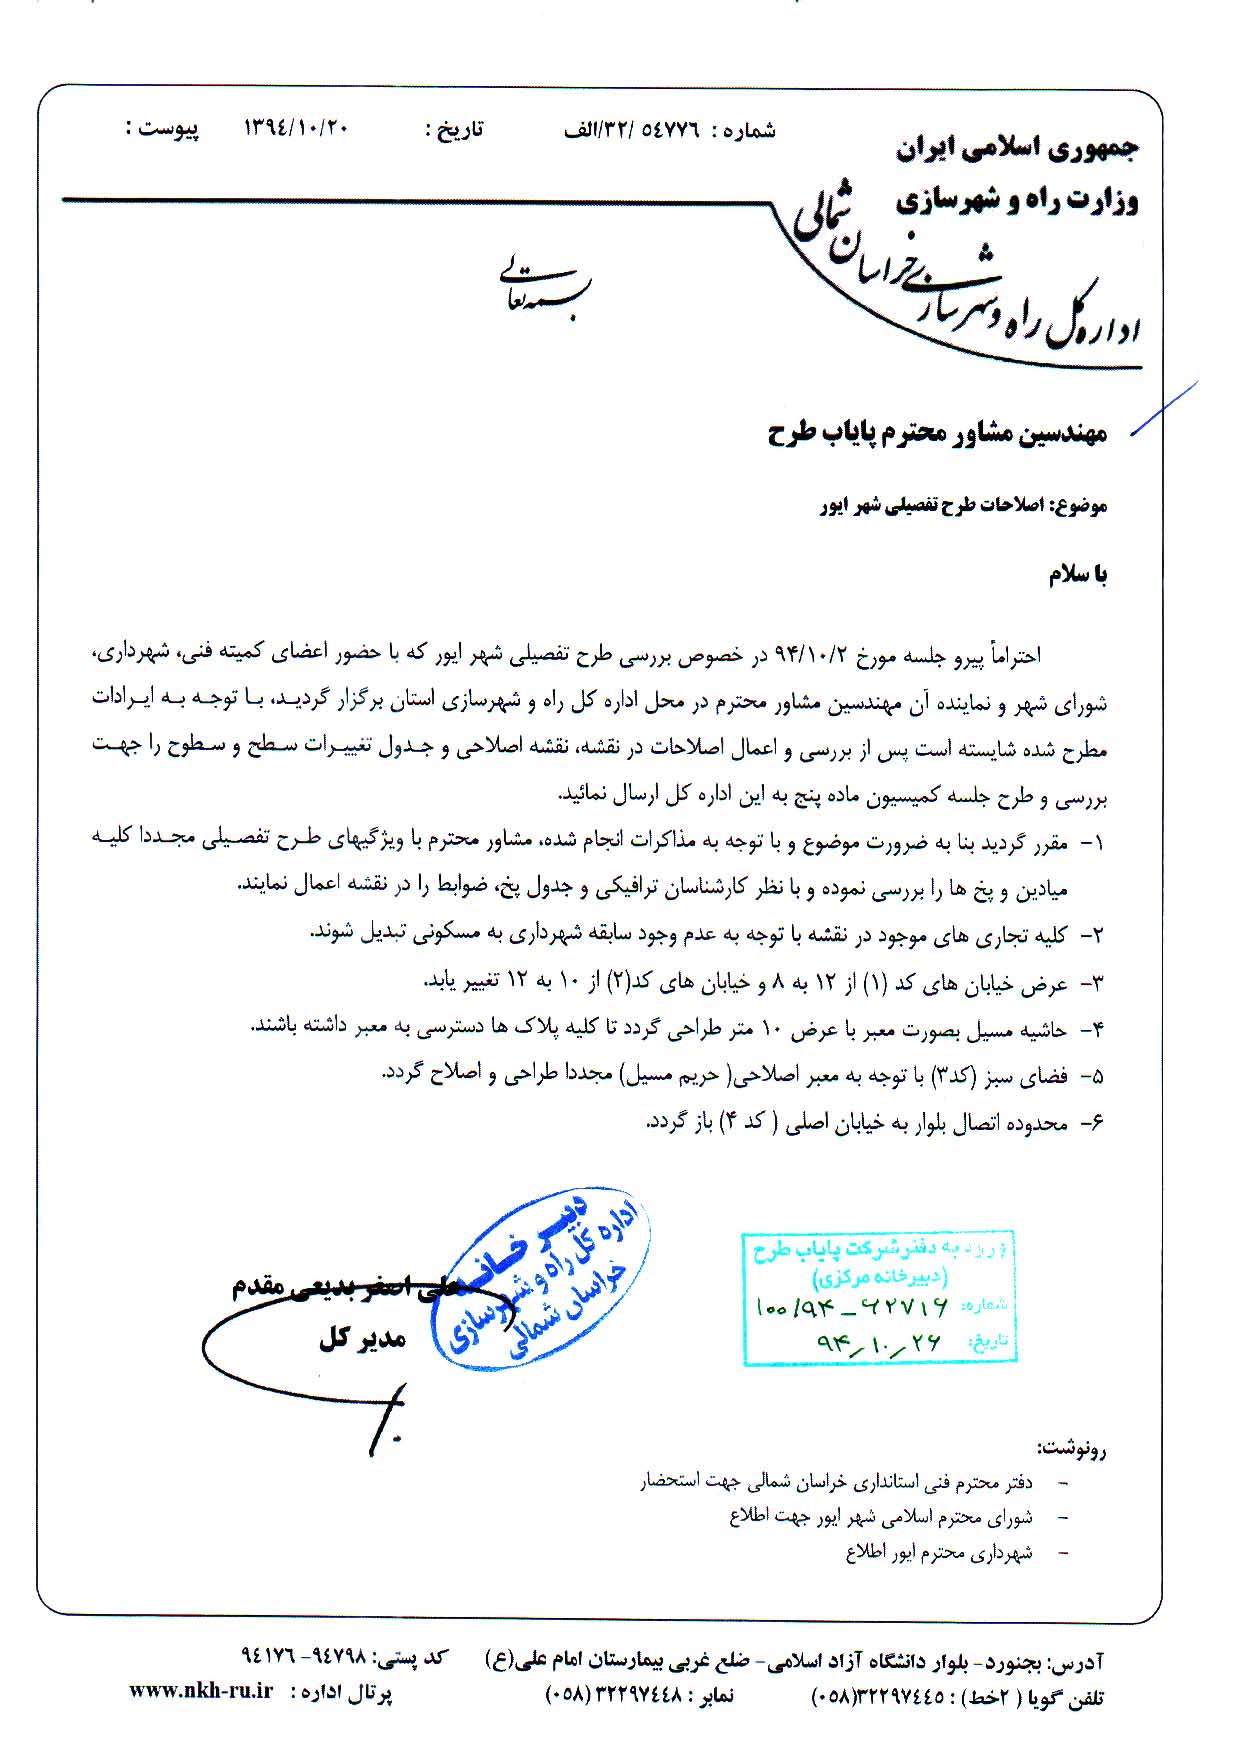 جمهوری اسلامی ایران
وزارت راه و شهرسازی
اداره کل راه و شهرسازی خراسان شمالی
شماره : ۵٤٧٧٦ /۳۲/الف
تاریخ : ۱۳۹٤/۱۰/۲۰
پیوست :
بسمه تعالی
مهندسین مشاور محترم پایاب طرح
موضوع: اصلاحات طرح تفصیلی شهر ایور
با سلام
احتراماً پیرو جلسه مورخ ۹۴/۱۰/۲ در خصوص بررسی طرح تفصیلی شهر ایور که با حضور اعضای کمیته فنی، شهرداری،
شورای شهر و نماینده آن مهندسین مشاور محترم در محل اداره کل راه و شهرسازی استان برگزار گردید، با توجه به ایرادات
مطرح شده شایسته است پس از بررسی و اعمال اصلاحات در نقشه، نقشه اصلاحی و جدول تغییرات سطح و سطوح را جهت
بررسی و طرح جلسه کمیسیون ماده پنج به این اداره کل ارسال نمائید.
۱- مقرر گردید بنا به ضرورت موضوع و با توجه به مذاکرات انجام شده، مشاور محترم با ویژگیهای طرح تفصیلی مجددا کلیه
میادین و پخ ها را بررسی نموده و با نظر کارشناسان ترافیکی و جدول پخ، ضوابط را در نقشه اعمال نمایند.
۲- کلیه تجاری های موجود در نقشه با توجه به عدم وجود سابقه شهرداری به مسکونی تبدیل شوند.
۳- عرض خیابان های کد (۱) از ۱۲ به ۸ و خیابان های کد(۲) از ۱۰ به ۱۲ تغییر یابد.
۴- حاشیه مسیل بصورت معبر با عرض ۱۰ متر طراحی گردد تا کلیه پلاک ها دسترسی به معبر داشته باشند.
۵- فضای سبز (کد۳) با توجه به معبر اصلاحی( حریم مسیل) مجددا طراحی و اصلاح گردد.
۶- محدوده اتصال بلوار به خیابان اصلی ( کد ۴) باز گردد.
دبیرخانه
اداره کل راه و شهرسازی
خراسان شمالی
علی اصغر بدیعی مقدم
مدیر کل
ورود به دفتر شرکت پایاب طرح
(دبیرخانه مرکزی)
شماره: ۱۰۰/۹۴-۶۲۷۱۶
تاریخ: ۹۴/۱۰/۲۶
رونوشت:
- دفتر محترم فنی استانداری خراسان شمالی جهت استحضار
- شورای محترم اسلامی شهر ایور جهت اطلاع
- شهرداری محترم ایور اطلاع
آدرس: بجنورد- بلوار دانشگاه آزاد اسلامی- ضلع غربی بیمارستان امام علی(ع) کد پستی: ۹٤۷۹۸- ۹٤۱۷٦
تلفن گویا ( ۲خط) : ۳۲۲۹۷٤٤٥(۰۵۸) نمابر : ۳۲۲۹۷٤٤۸ (۰۵۸) پرتال اداره : www.nkh-ru.ir